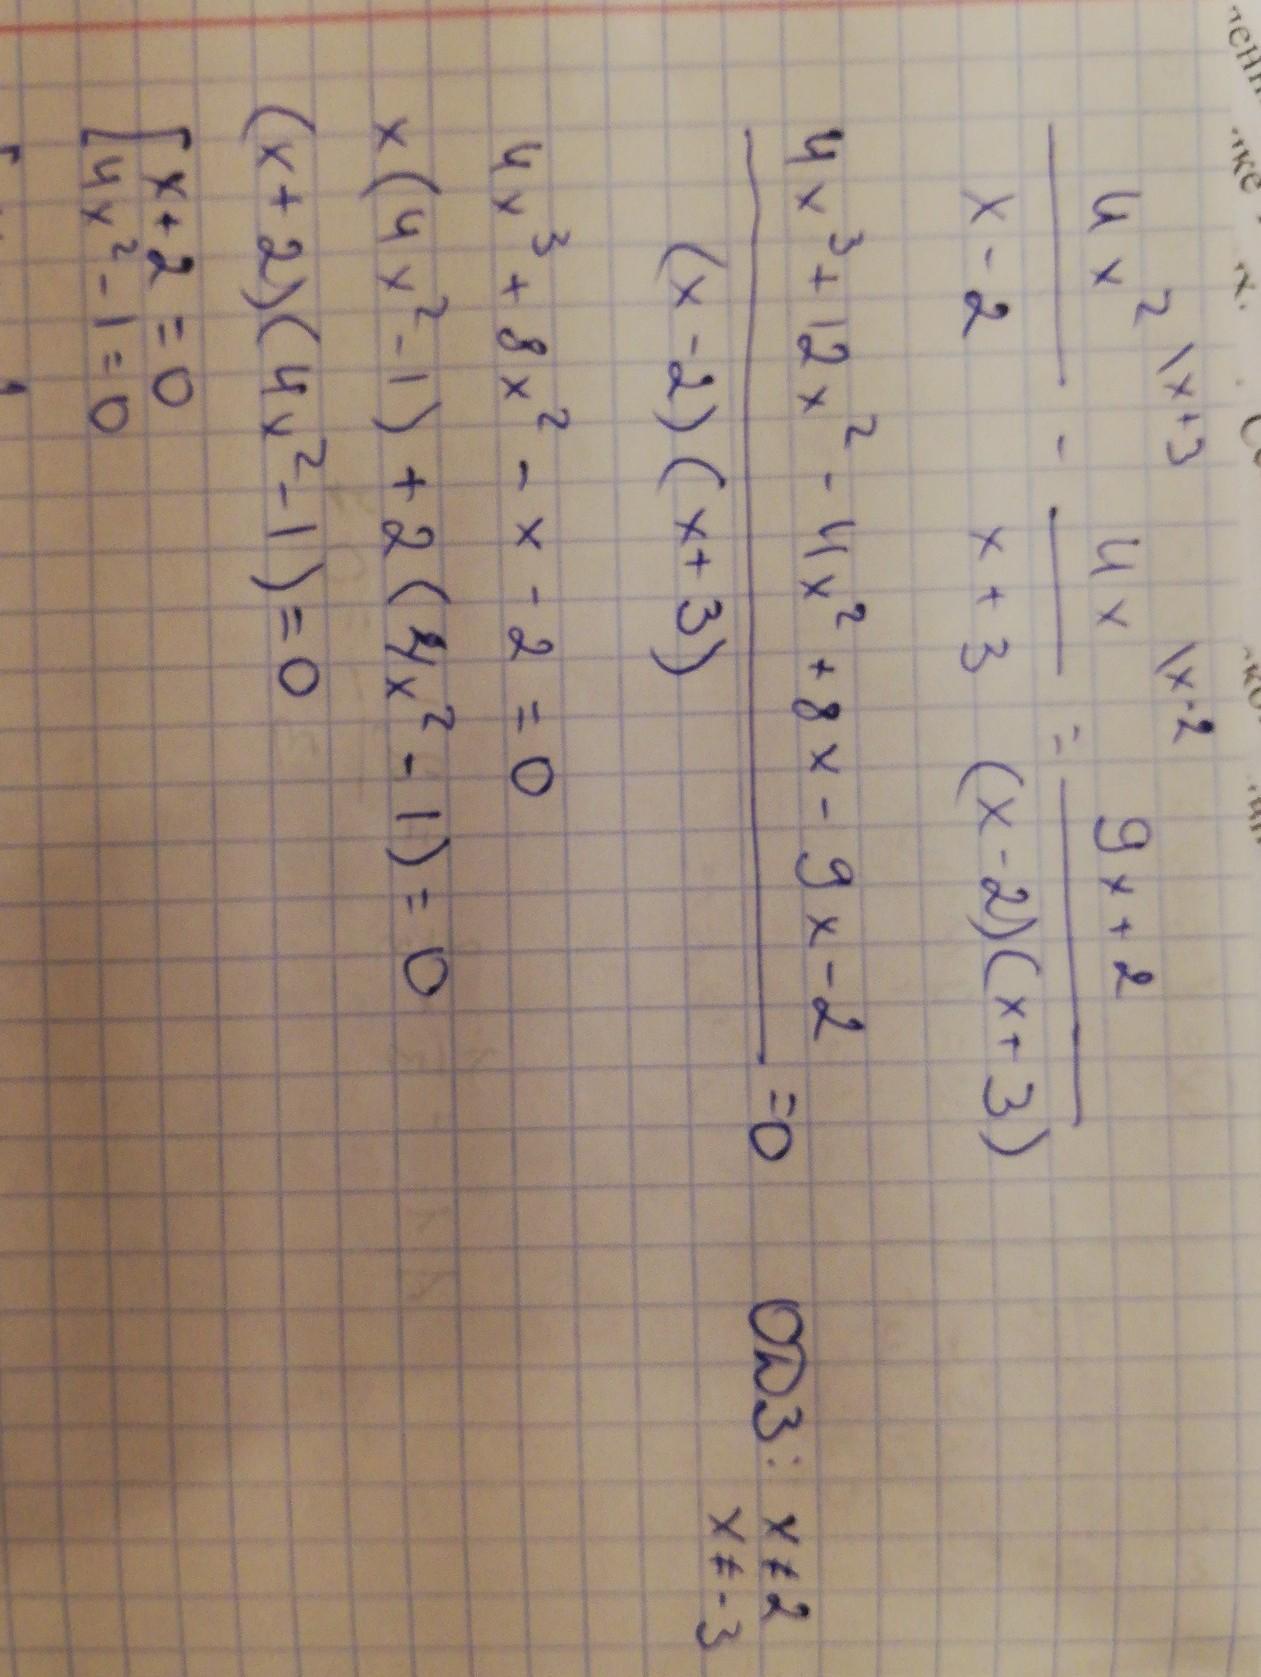 4x² \x+3 4x \x-2 9x+2
— - — = —
x-2 x+3 (x-2)(x+3)
4x³+12x²-4x²+8x-9x-2
=0 ОДЗ: x≠2
(x-2)(x+3) x≠-3
4x³+8x²-x-2=0
x(4x²-1)+2(4x²-1)=0
(x+2)(4x²-1)=0
[x+2=0
4x²-1=0